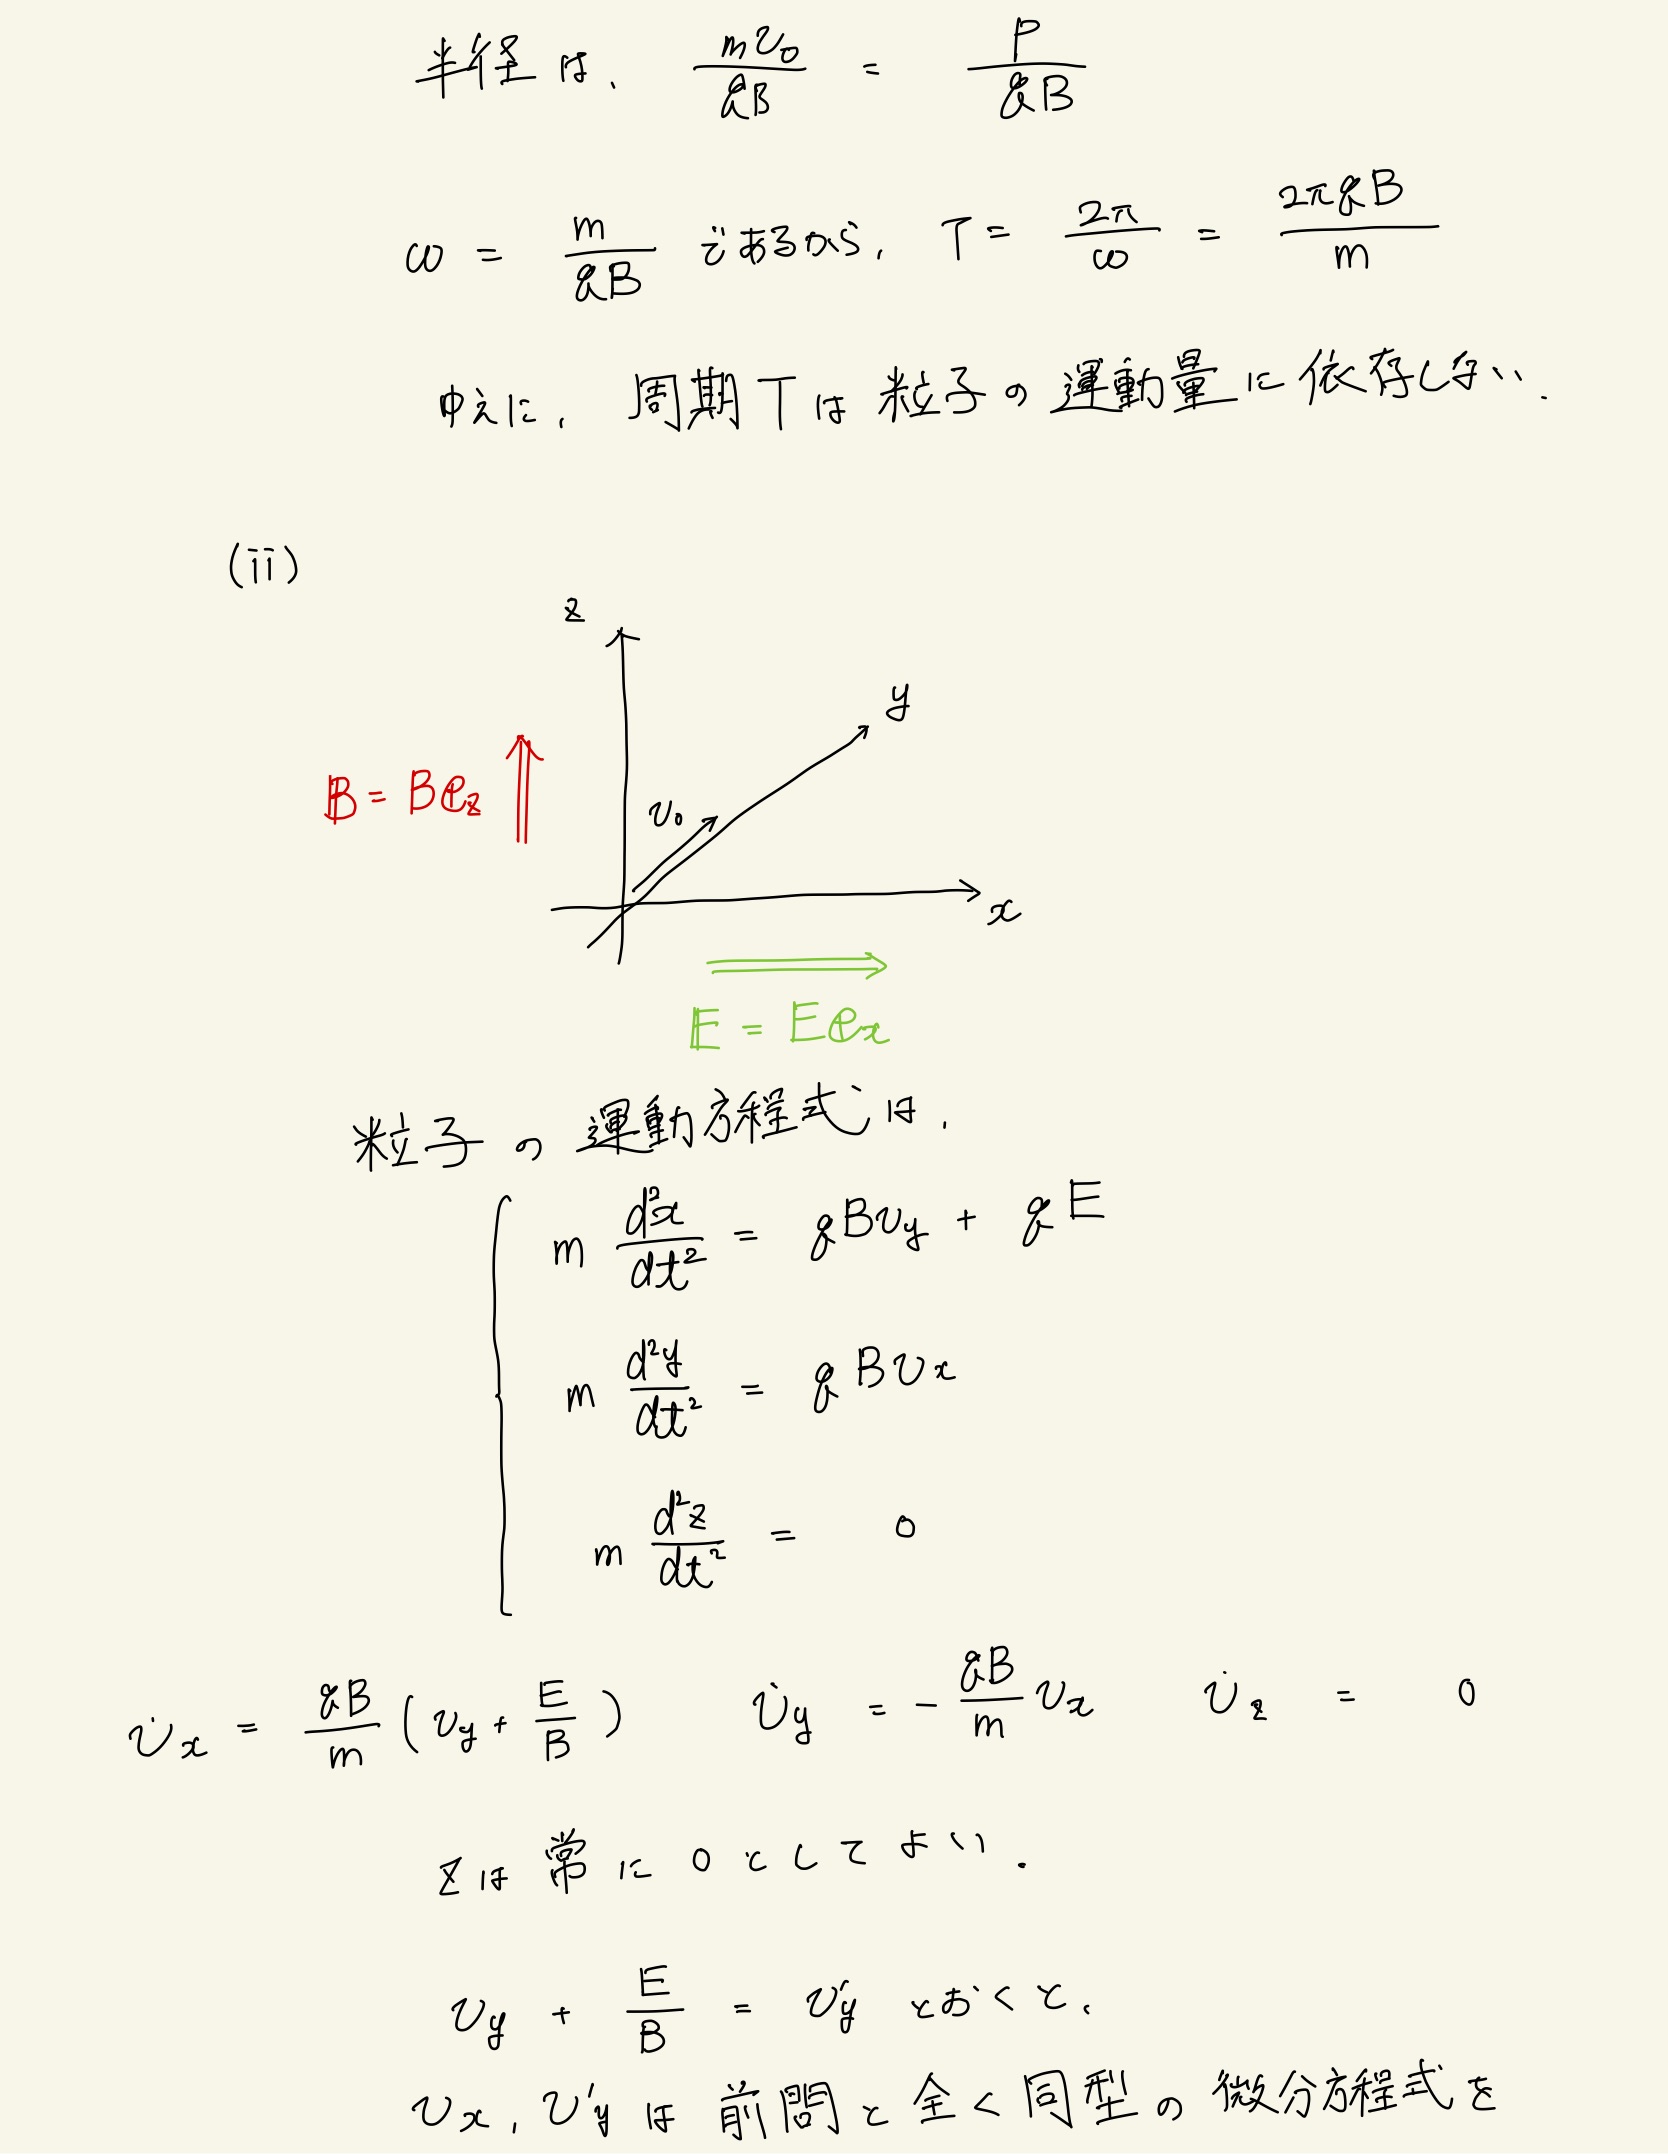 半径は、 mv₀/qB = P/qB
ω = m/qB であるから、 T = 2π/ω = 2πqB/m
ゆえに、周期Tは粒子の運動量に依存しない.
(ii)
z
y
𝔹 = B𝕖z
v₀
x
𝔼 = E𝕖x
粒子の運動方程式は、
m d²x/dt² = qBvy + qE
m d²y/dt² = qBvx
m d²z/dt² = 0
v̇x = qB/m (vy + E/B) v̇y = - qB/m vx v̇z = 0
zは常に0としてよい.
vy + E/B = v'y とおくと、
vx, v'y は前問と全く同型の微分方程式を